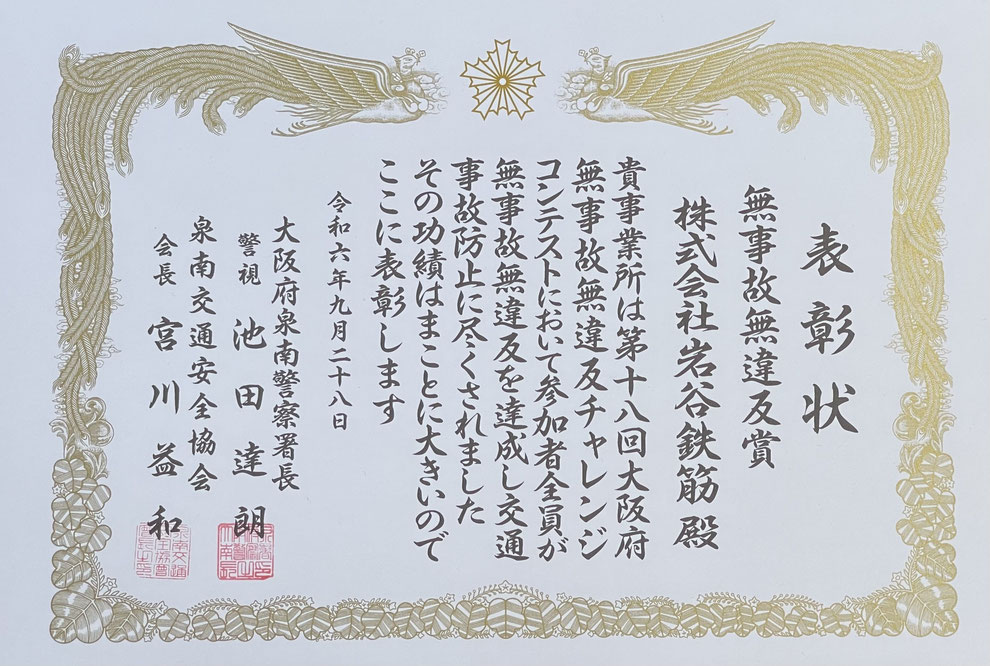 表彰状
無事故無違反賞
株式会社岩谷鉄筋殿
貴事業所は第十八回大阪府
無事故無違反チャレンジ
コンテストにおいて参加者全員が
無事故無違反を達成し交通
事故防止に尽くされました
その功績はまことに大きいので
ここに表彰します
令和六年九月二十八日
大阪府泉南警察署長
警視 池田達朗
泉南交通安全協会
会長 宮川益和